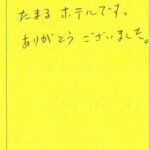 たまる ホテルです。
ありがとう ございました。